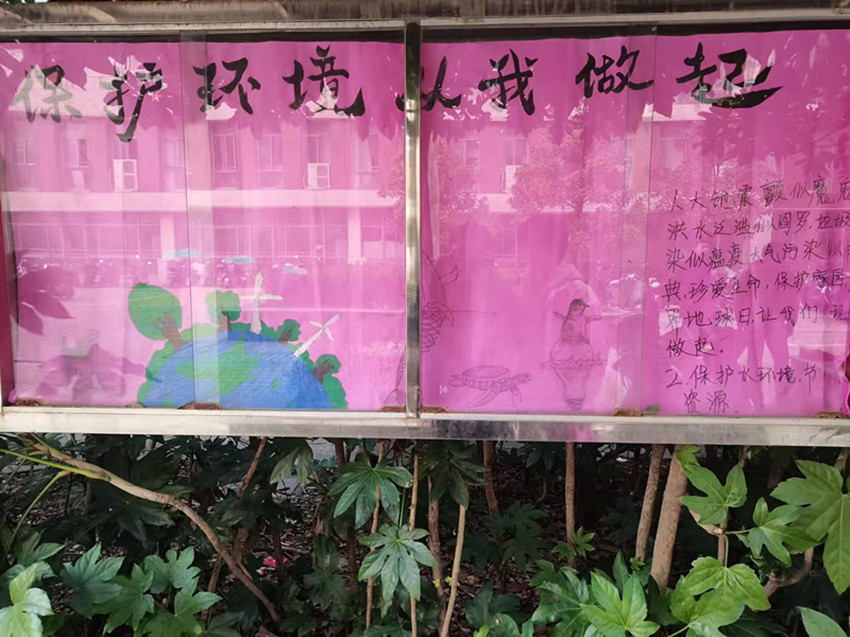 保护环境从我做起
人大地震颤似魔鬼
洪水泛滥似阎罗,垃圾
染似瘟疫大气污染似
典,珍爱生命,保护家园,
界地球日,让我们
做起.
2.保护水环境,节
资源.